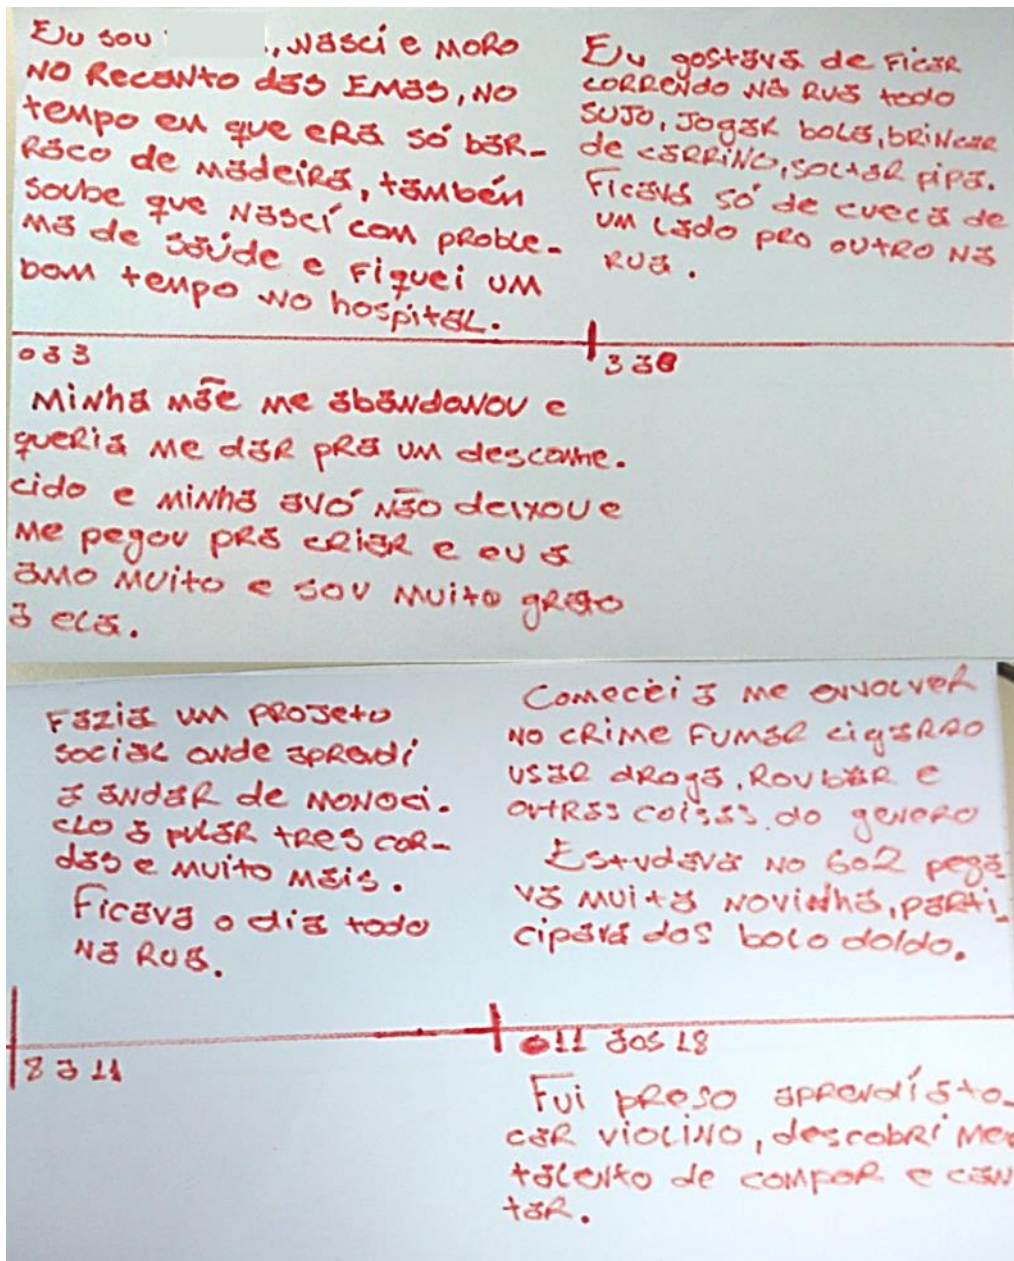 Eu sou , nasci e moro
no Recanto das Emas, no
tempo em que era só bar-
raco de madeira, também
soube que nascí com proble-
ma de saúde e fiquei um
bom tempo no hospital.
Eu gostava de ficar
correndo na rua todo
sujo, jogar bola, brincar
de carrino, soltar pipa.
Ficava só de cueca de
um lado pro outro na
rua.
0 a 3
3 a 8
Minha mãe me abandonou e
queria me dar pra um desconhe.
cido e minha avó não deixou e
me pegou pra criar e eu a
amo muito e sou muito grato
a ela.
Fazia um projeto
social onde aprendi
a andar de monoci.
clo a pular tres cor-
das e muito mais.
Ficava o dia todo
na rua.
Comecei a me envolver
no crime fumar cigarro
usar droga, roubar e
outras coisas do genero
Estudava no 602 pega-
va muita novinha, parti-
cipava dos bolo doido.
8 a 11
11 aos 18
Fui preso aprendí a to-
car violino, descobrí meu
talento de compor e can
tar.